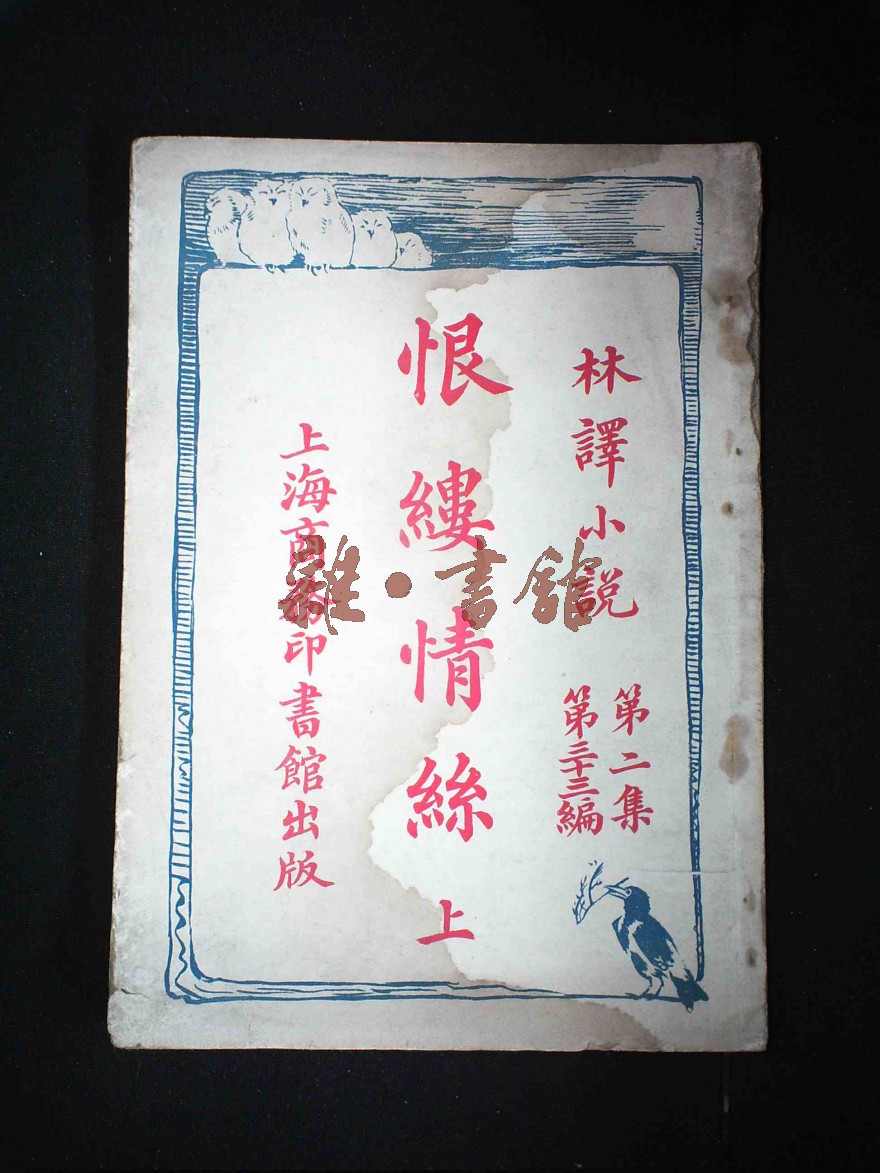 林譯小説
第二集
第三十三編
恨縷情絲 上
上海商務印書館出版
雜·書館